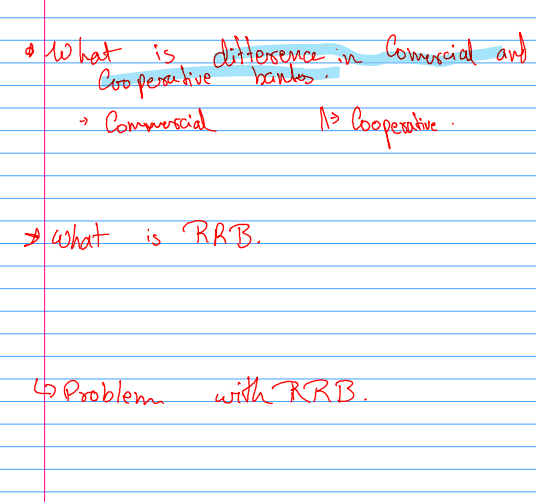 What is difference in Comercial and
Cooperative banks.
→ Commercial || → Cooperative.
→ What is RRB.
↳ Problem with RRB.